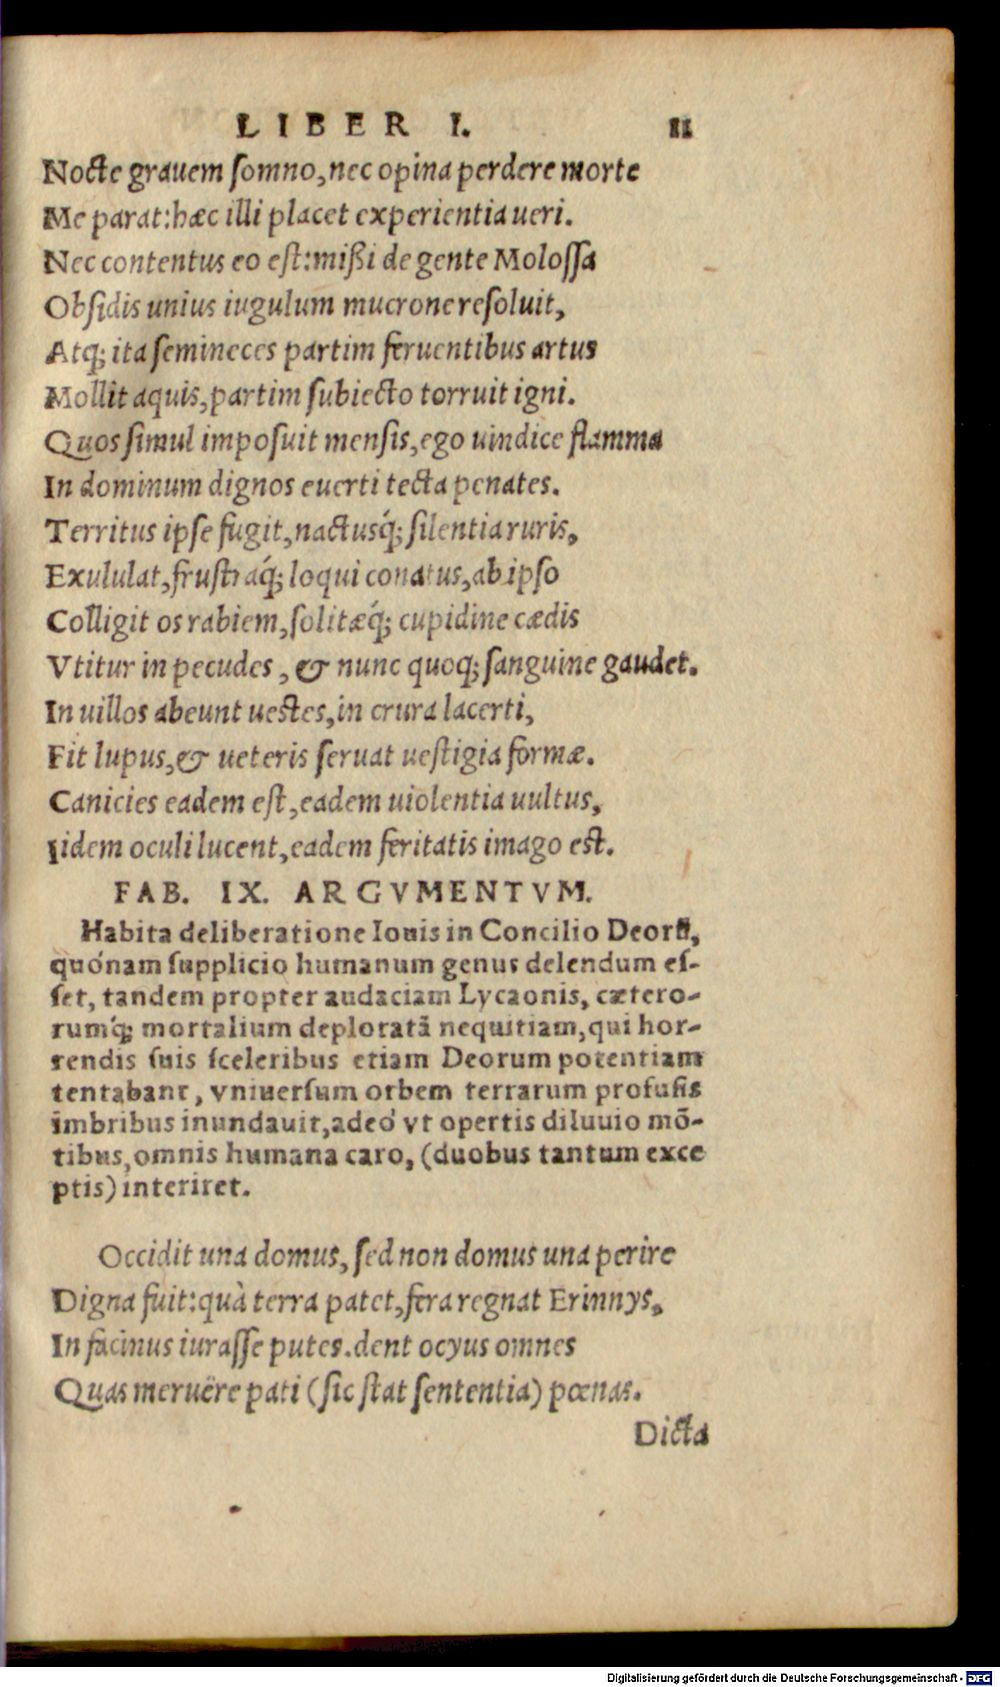 LIBER I. 11
Nocte grauem somno, nec opina perdere morte
Me parat: hæc illi placet experientia ueri.
Nec contentus eo est: mißi de gente Molossa
Obsidis unius iugulum mucrone resoluit,
Atq; ita semineces partim feruentibus artus
Mollit aquis, partim subiecto torruit igni.
Quos simul imposuit mensis, ego uindice flamma
In dominum dignos euerti tecta penates.
Territus ipse fugit, nactusq́; silentia ruris,
Exululat, frustraq́; loqui conatus, ab ipso
Colligit os rabiem, solitæq́; cupidine cædis
Vtitur in pecudes, & nunc quoq; sanguine gaudet.
In uillos abeunt uestes, in crura lacerti,
Fit lupus, & ueteris seruat uestigia formæ.
Canicies eadem est, eadem uiolentia uultus,
Iidem oculi lucent, eadem feritatis imago est.
FAB. IX. ARGVMENTVM.
Habita deliberatione Iouis in Concilio Deorũ,
quónam supplicio humanum genus delendum es-
set, tandem propter audaciam Lycaonis, cætero-
rumq́; mortalium deploratã nequitiam, qui hor-
rendis suis sceleribus etiam Deorum potentiam
tentabant, vniuersum orbem terrarum profusis
imbribus inundauit, adeó vt opertis diluuio mõ-
tibus, omnis humana caro, (duobus tantum exce
ptis) interiret.
Occidit una domus, sed non domus una perire
Digna fuit: quà terra patet, fera regnat Erinnys,
In facinus iurasse putes. dent ocyus omnes
Quas meruêre pati (sic stat sententia) pœnas.
Dicta
Digitalisierung gefördert durch die Deutsche Forschungsgemeinschaft - DFG